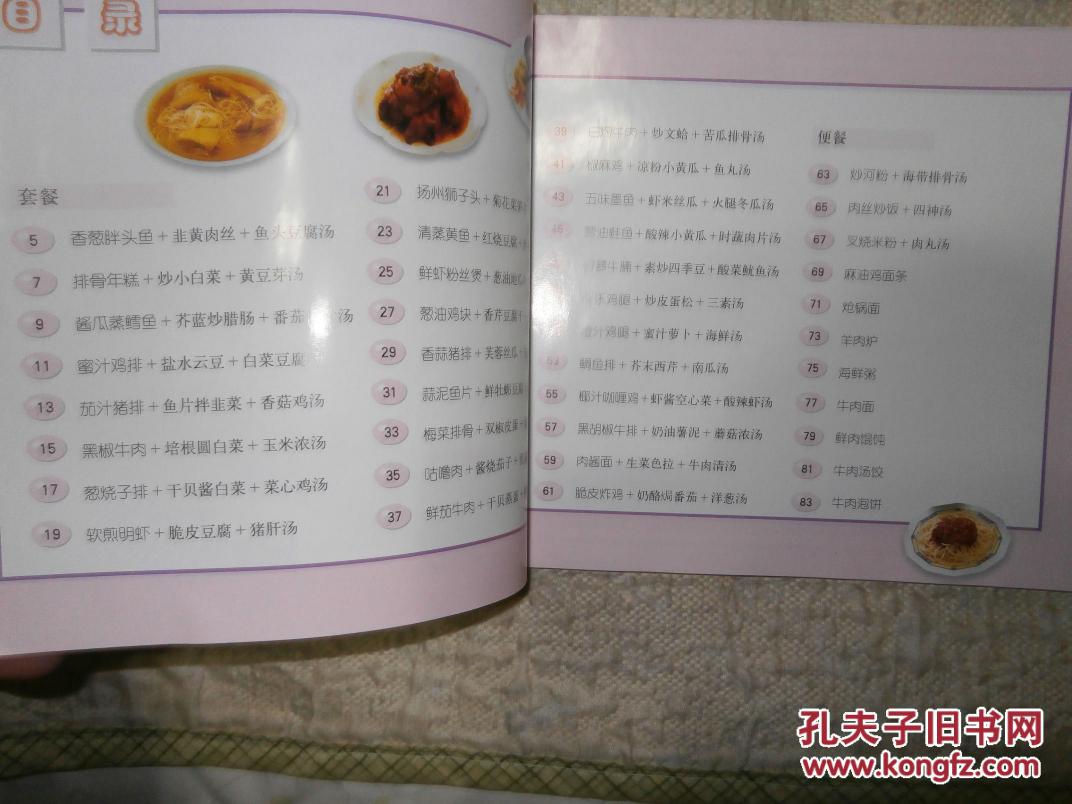 目录
套餐
5 香葱胖头鱼+韭黄肉丝+鱼头豆腐汤
7 排骨年糕+炒小白菜+黄豆芽汤
9 酱瓜蒸鳕鱼+芥蓝炒腊肠+番茄 汤
11 蜜汁鸡排+盐水云豆+白菜豆腐
13 茄汁猪排+鱼片拌韭菜+香菇鸡汤
15 黑椒牛肉+培根圆白菜+玉米浓汤
17 葱烧子排+干贝酱白菜+菜心鸡汤
19 软煎明虾+脆皮豆腐+猪肝汤
21 扬州狮子头+菊花
23 清蒸黄鱼+红烧豆腐+
25 鲜虾粉丝煲+葱油地瓜
27 葱油鸡块+香芹豆腐干
29 香蒜猪排+芙蓉丝瓜+
31 蒜泥鱼片+鲜牡蛎豆腐
33 梅菜排骨+双椒皮蛋+
35 咕噜肉+酱烧茄子+
37 鲜茄牛肉+干贝蒸蛋+
39 牛肉+炒文蛤+苦瓜排骨汤
41 椒麻鸡+凉粉小黄瓜+鱼丸汤
43 五味墨鱼+虾米丝瓜+火腿冬瓜汤
45 鲑鱼+酸辣小黄瓜+时蔬肉片汤
牛腩+素炒四季豆+酸菜鱿鱼汤
乐鸡腿+炒皮蛋松+三素汤
汁鸡腿+蜜汁萝卜+海鲜汤
53 鲷鱼排+芥末西芹+南瓜汤
55 椰汁咖喱鸡+虾酱空心菜+酸辣虾汤
57 黑胡椒牛排+奶油薯泥+蘑菇浓汤
59 肉酱面+生菜色拉+牛肉清汤
61 脆皮炸鸡+奶酪焗番茄+洋葱汤
便餐
63 炒河粉+海带排骨汤
65 肉丝炒饭+四神汤
67 叉烧米粉+肉丸汤
69 麻油鸡面条
71 炝锅面
73 羊肉炉
75 海鲜粥
77 牛肉面
79 鲜肉馄饨
81 牛肉汤饺
83 牛肉泡饼
孔夫子旧书网
www.kongfz.com